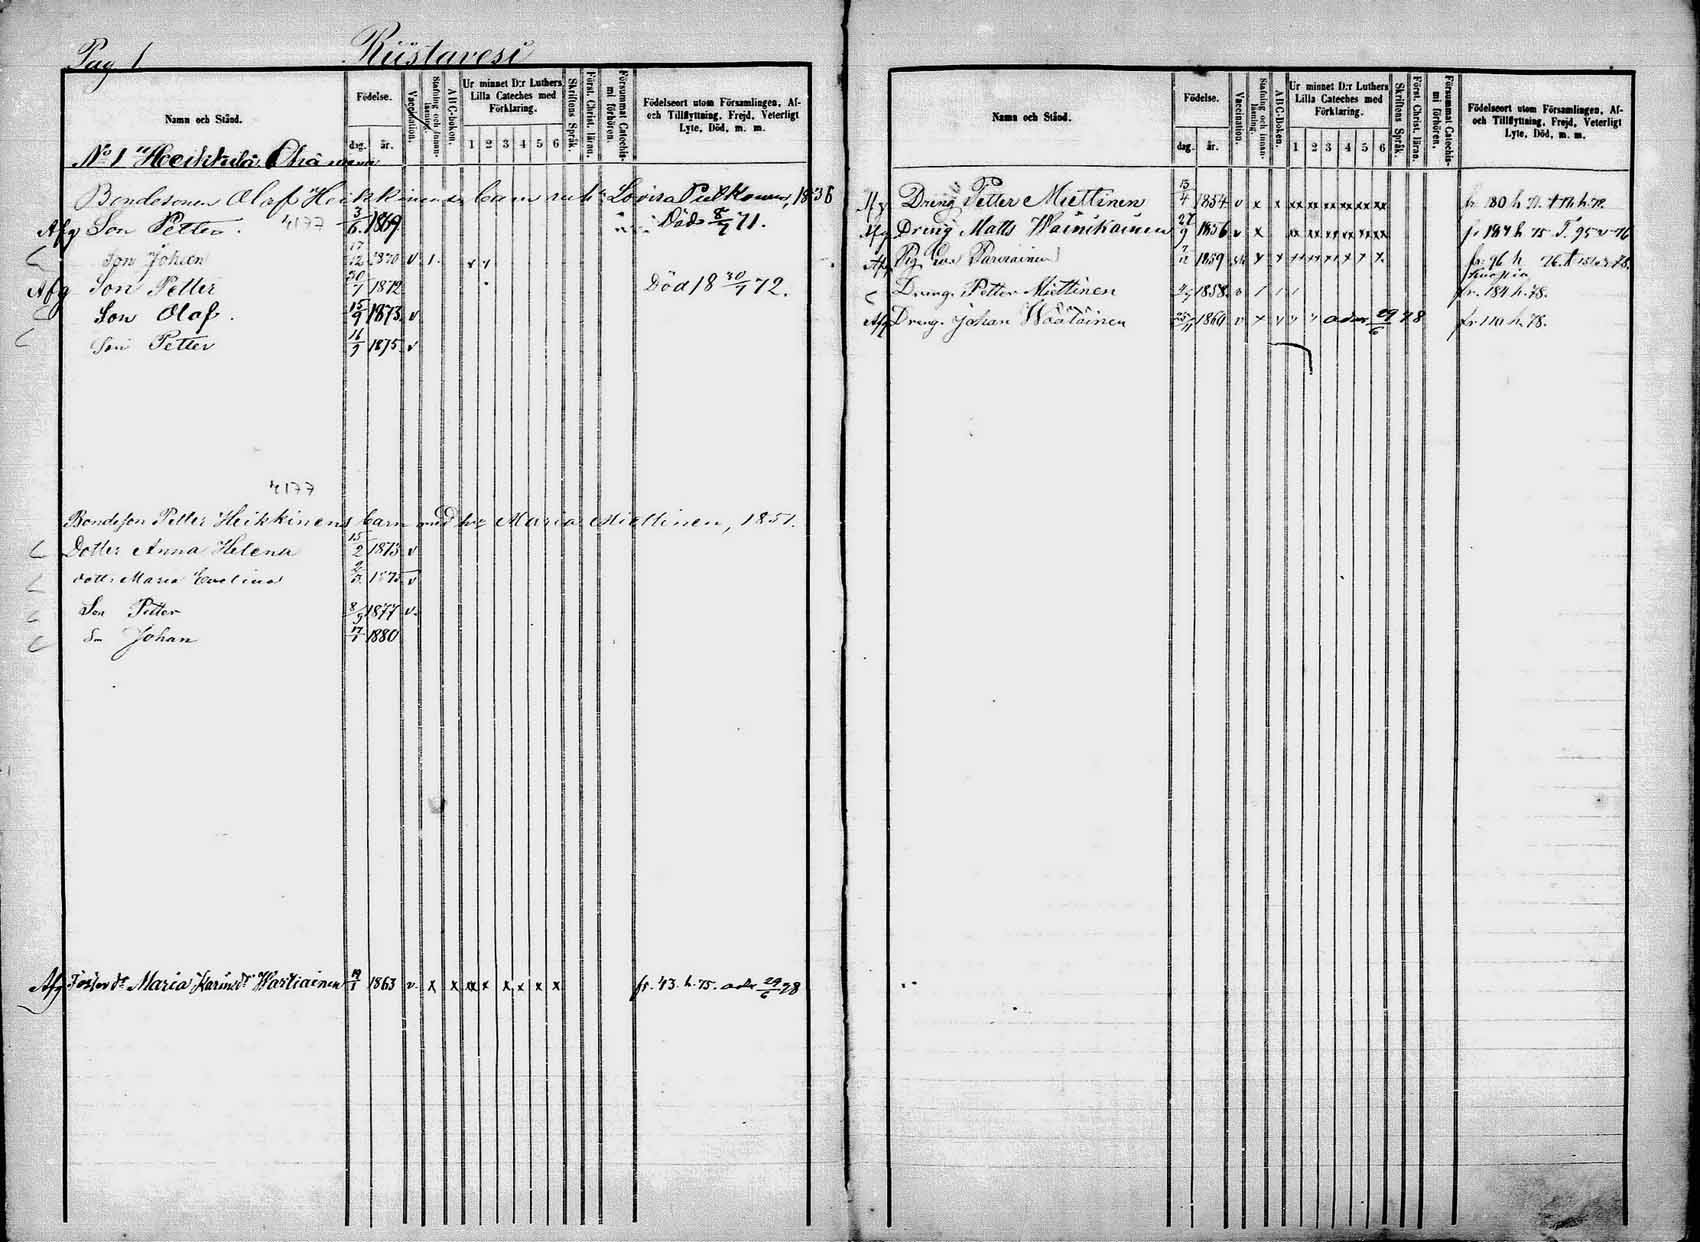 Pag 1 Riistavesi
Namn och Stånd. Födelse. dag. år. Vaccination. Stafning och innanläsning. A B C-boken. Ur minnet D:r Luthers Lilla Cateches med Förklaring. 1 2 3 4 5 6 Skriftens Språk. Först. Christ. läran. Försummat Catechismi förhören. Födelseort utom Församlingen, Af- och Tillflyttning, Frejd, Veterligt Lyte, Död, m. m.
No 1 Heikkilä
Bondesonen Olof Heikkinens barn Lovisa 1836
Afg Son Petter. 4177 3/6 1869 Död 8/7 71.
Son Johan 17/12 1870 v 1
Afg Son Petter 20/1 1872 Död 18 30/7 72.
Son Olof. 15/9 1873 v
Son Petter 16/9 1875 v
4177
Bondeson Petter Heikkinens barn med h: Maria Miettinen, 1851.
Dotter Anna Helena 15/2 1873 v
dott: Maria Evelina 1875 v
Son Petter 8/9 1877 v.
Sn Johan 17/1 1880
Afg Maria Karin Wartiainen 19/1 1863 v. x x xx x x x x x fr. 43. h. 75. adm 29/6 78
Namn och Stånd. Födelse. dag. år. Vaccination. Stafning och innanläsning. A B C-boken. Ur minnet D:r Luthers Lilla Cateches med Förklaring. 1 2 3 4 5 6 Skriftens Språk. Först. Christ. läran. Försummat Catechismi förhören. Födelseort utom Församlingen, Af- och Tillflyttning, Frejd, Veterligt Lyte, Död, m. m.
Afg Dreng Petter Miettinen 13/4 1854 v x x xx xx xx xx xx xx fr. 180 h.
Afg Dreng Matts Wäinikäinen 27/9 1856 v x xx xx xx xx xx xx fr 184 h 75 T. 95 v 76
Afg Pig Eva Parviainen 7/12 1859 fr. 76 h 76.
Dreng. Petter Miettinen 1858. v 1 1 1 fr. 184 h. 78.
Afg Dreng. Johan Wäätäinen 1860 v adm 29/6 78 fr. 110 h. 78.